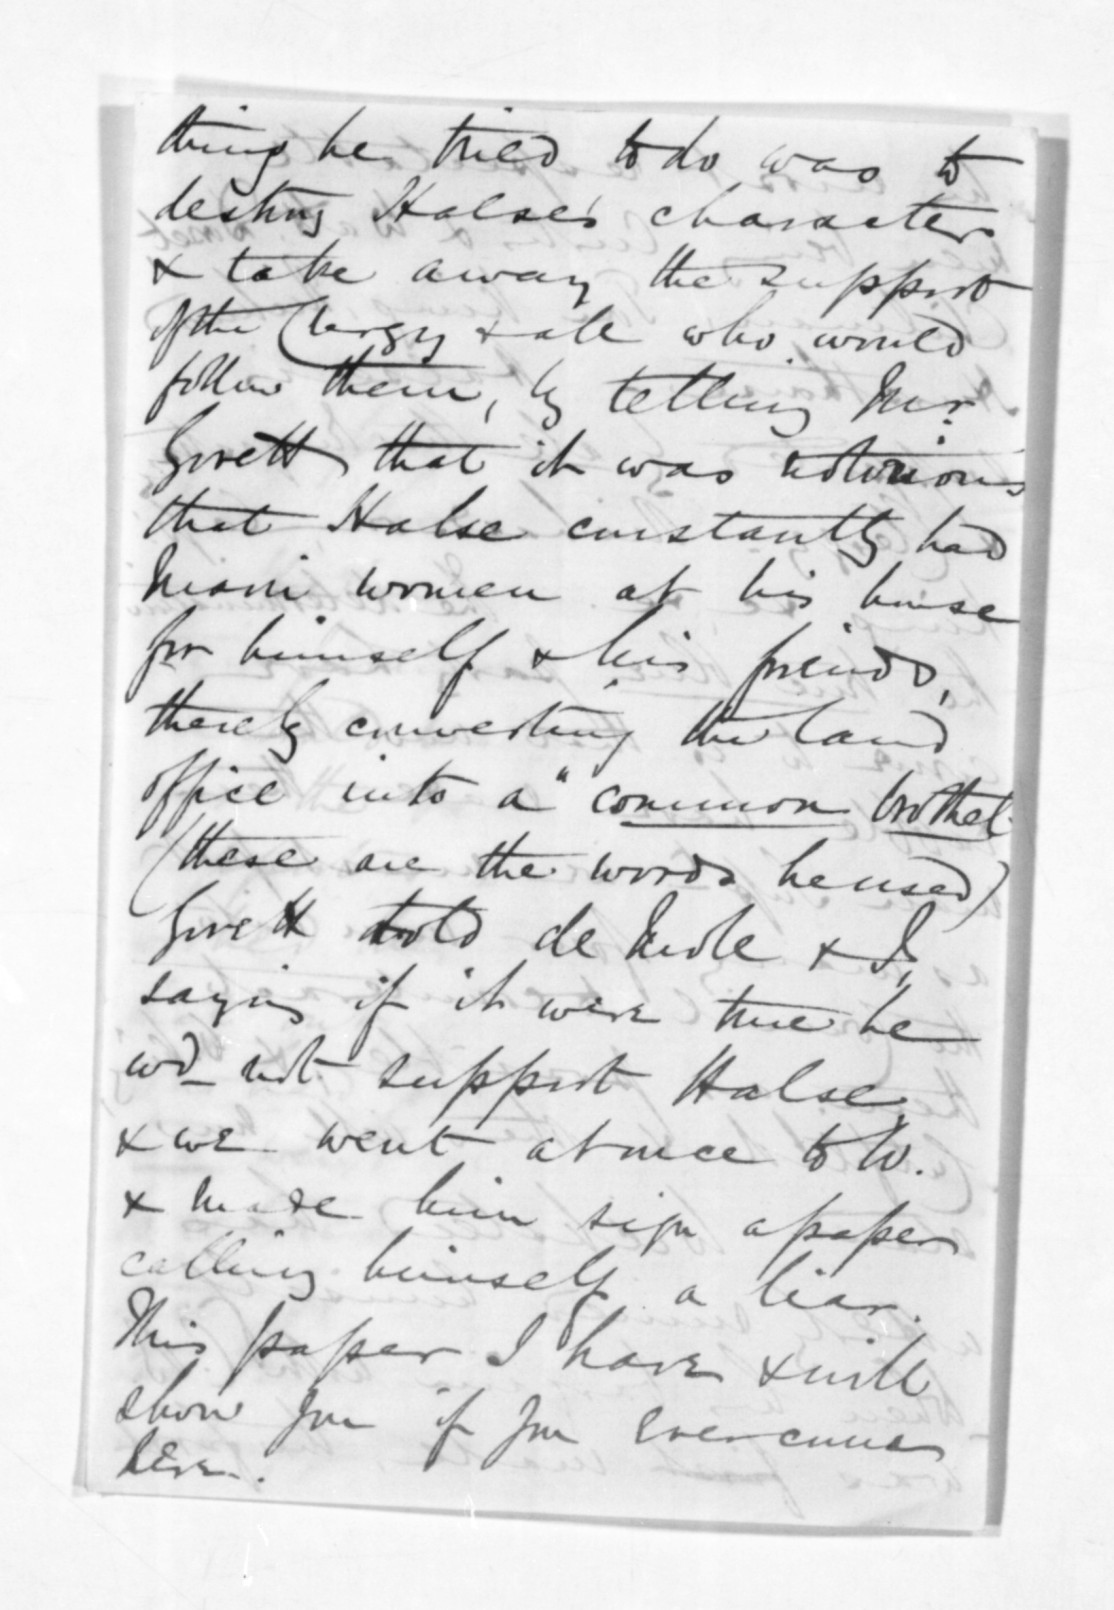 thing he tried to do was to
destroy Halse's character
& take away the support
of the Clergy & all who would
follow them, by telling Mr.
Govett that it was notorious
that Halse constantly had
Maori women at his house
for himself & his friends,
thereby converting the land
office into a "common brothel
(these are the words he used)
Govett told de Mole & I,
saying if it were true he
wd not support Halse
& we went at once to W.
& made him sign a paper
calling himself a liar.
This paper I have & will
show you if you ever come
here.